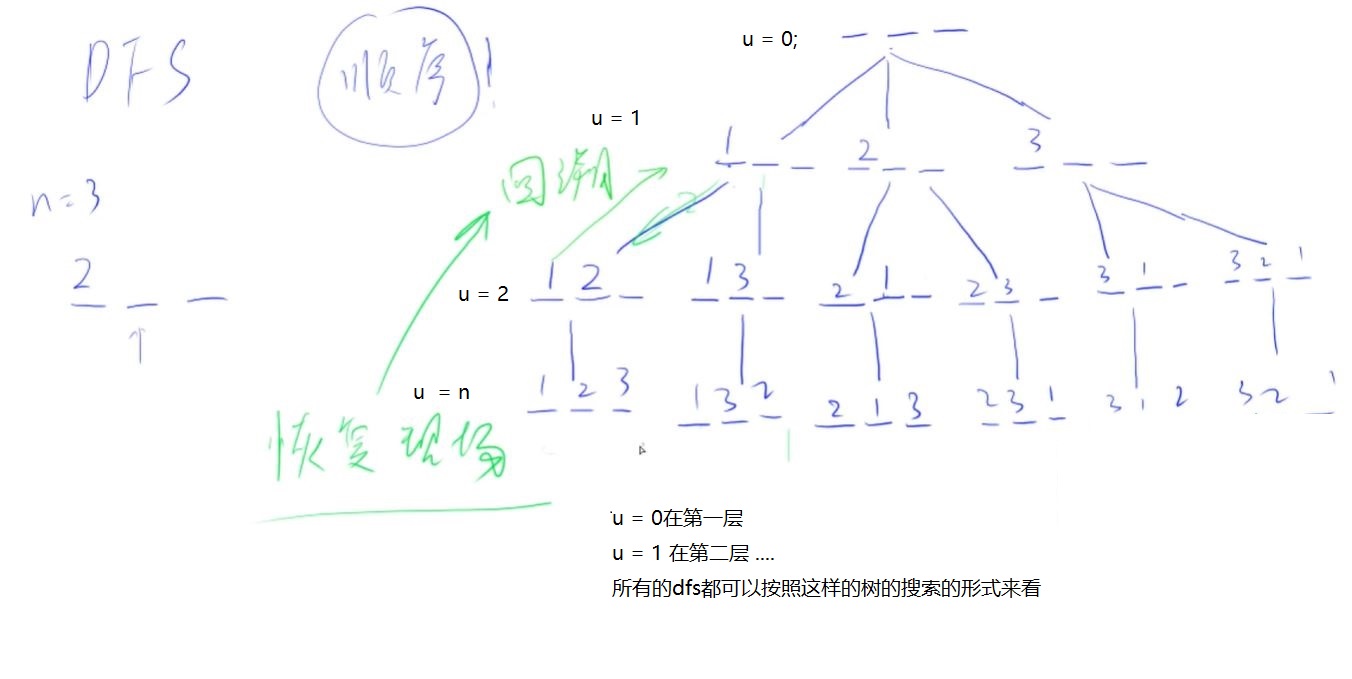 DFS 顺序!
u = 0; _ _ _
u = 1
1 _ _ 2 _ _ 3 _ _
回溯
n=3
2 _ _
↑
u = 2
1 2 _ 1 3 _ 2 1 _ 2 3 _ 3 1 _ 3 2 1
u = n
1 2 3 1 3 2 2 1 3 2 3 1 3 1 2 3 2 1
恢复现场
u = 0在第一层
u = 1 在第二层 ....
所有的dfs都可以按照这样的树的搜索的形式来看